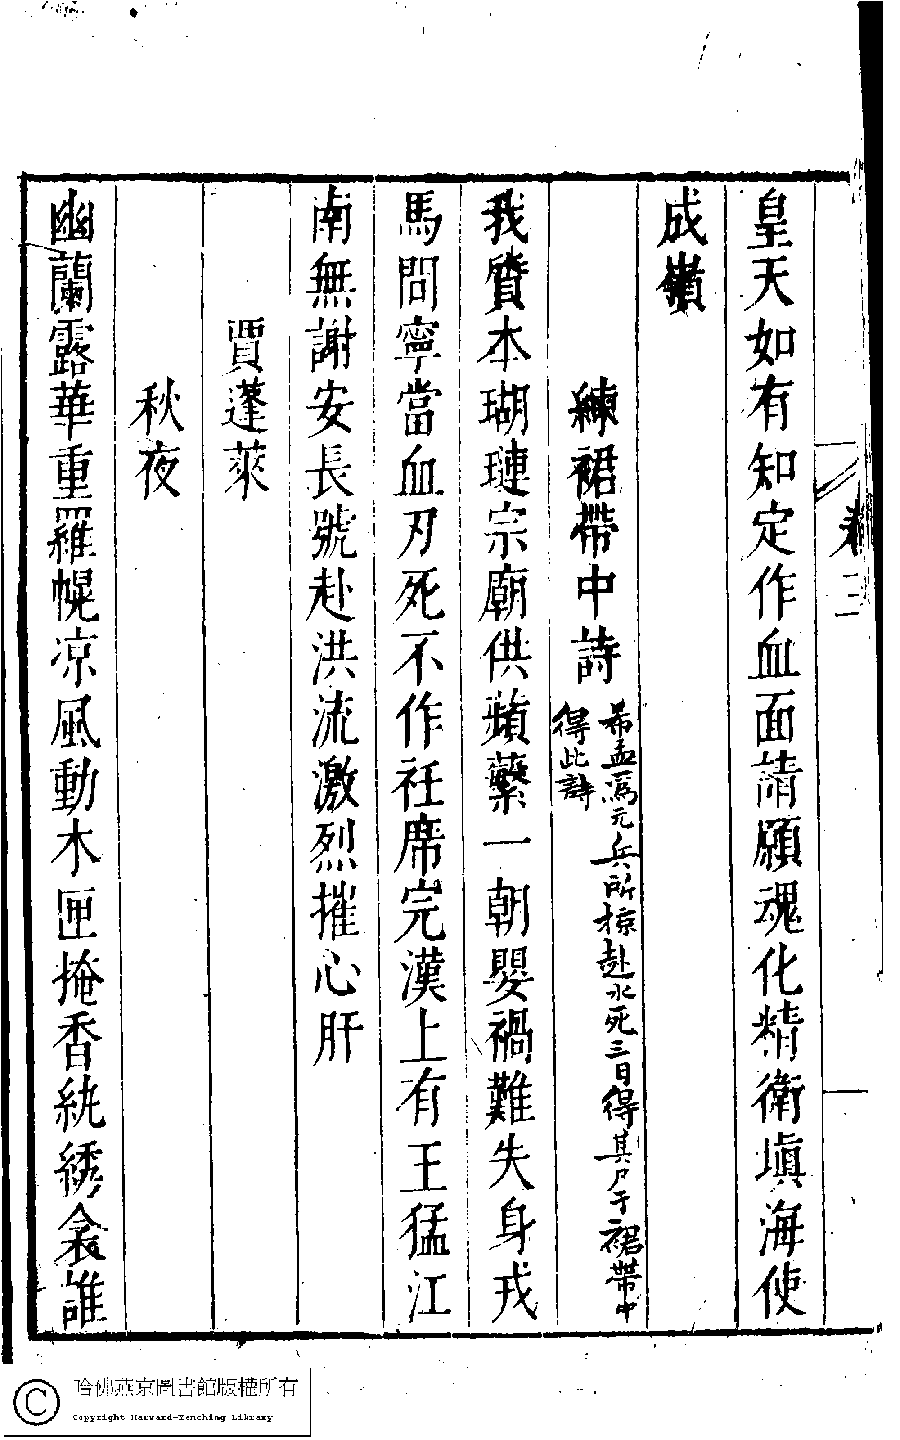 卷三
皇天如有知定作血面請願魂化精衛塡海使
成嶺
練裙帶中詩
希孟爲元兵所掠赴水死三日得其尸于裙帶中
得此詩
我質本瑚璉宗廟供蘋蘩一朝嬰禍難失身戎
馬間寧當血刃死不作衽席完漢上有王猛江
南無謝安長號赴洪流激烈摧心肝
賈蓬萊
秋夜
幽蘭露華重羅幌凉風動木匣掩香紈綉衾誰
哈佛燕京圖書館版權所有
Copyright Harvard-Yenching Library